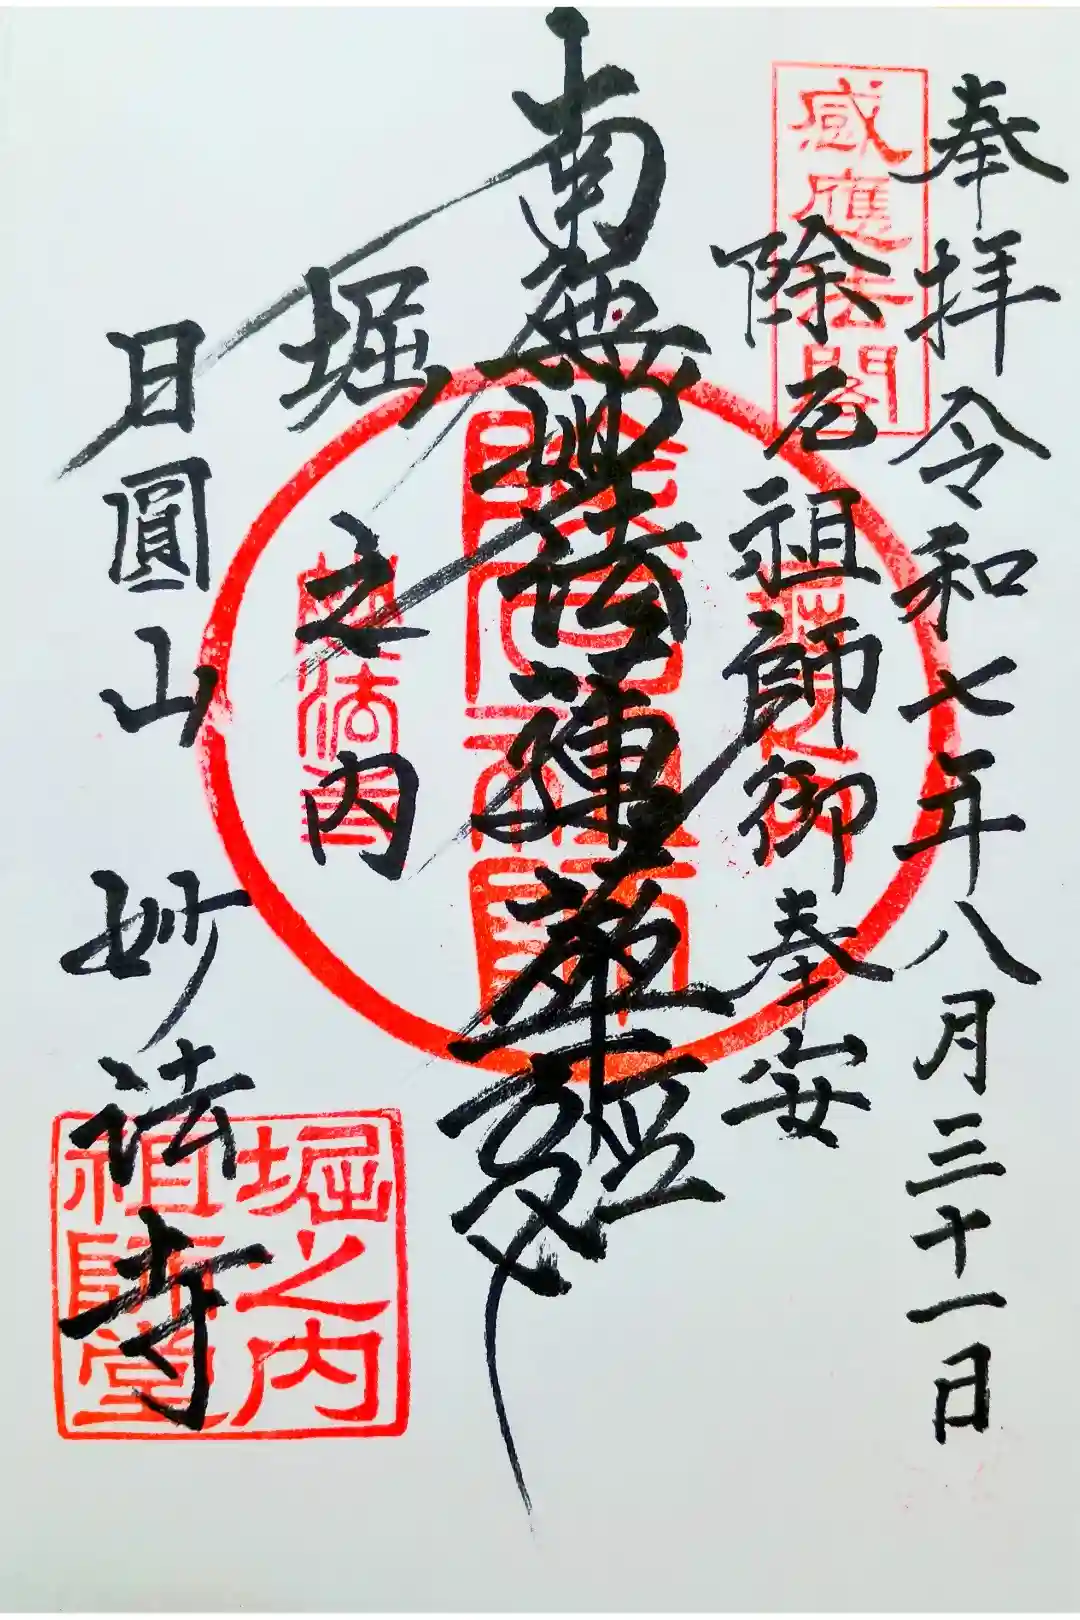 奉拝令和七年八月三十一日
感應法閣
除厄祖師御奉安
南無妙法蓮華経
堀之内
日圓山妙法寺
除厄祖師
堀之内
妙法寺
堀之内
祖師堂